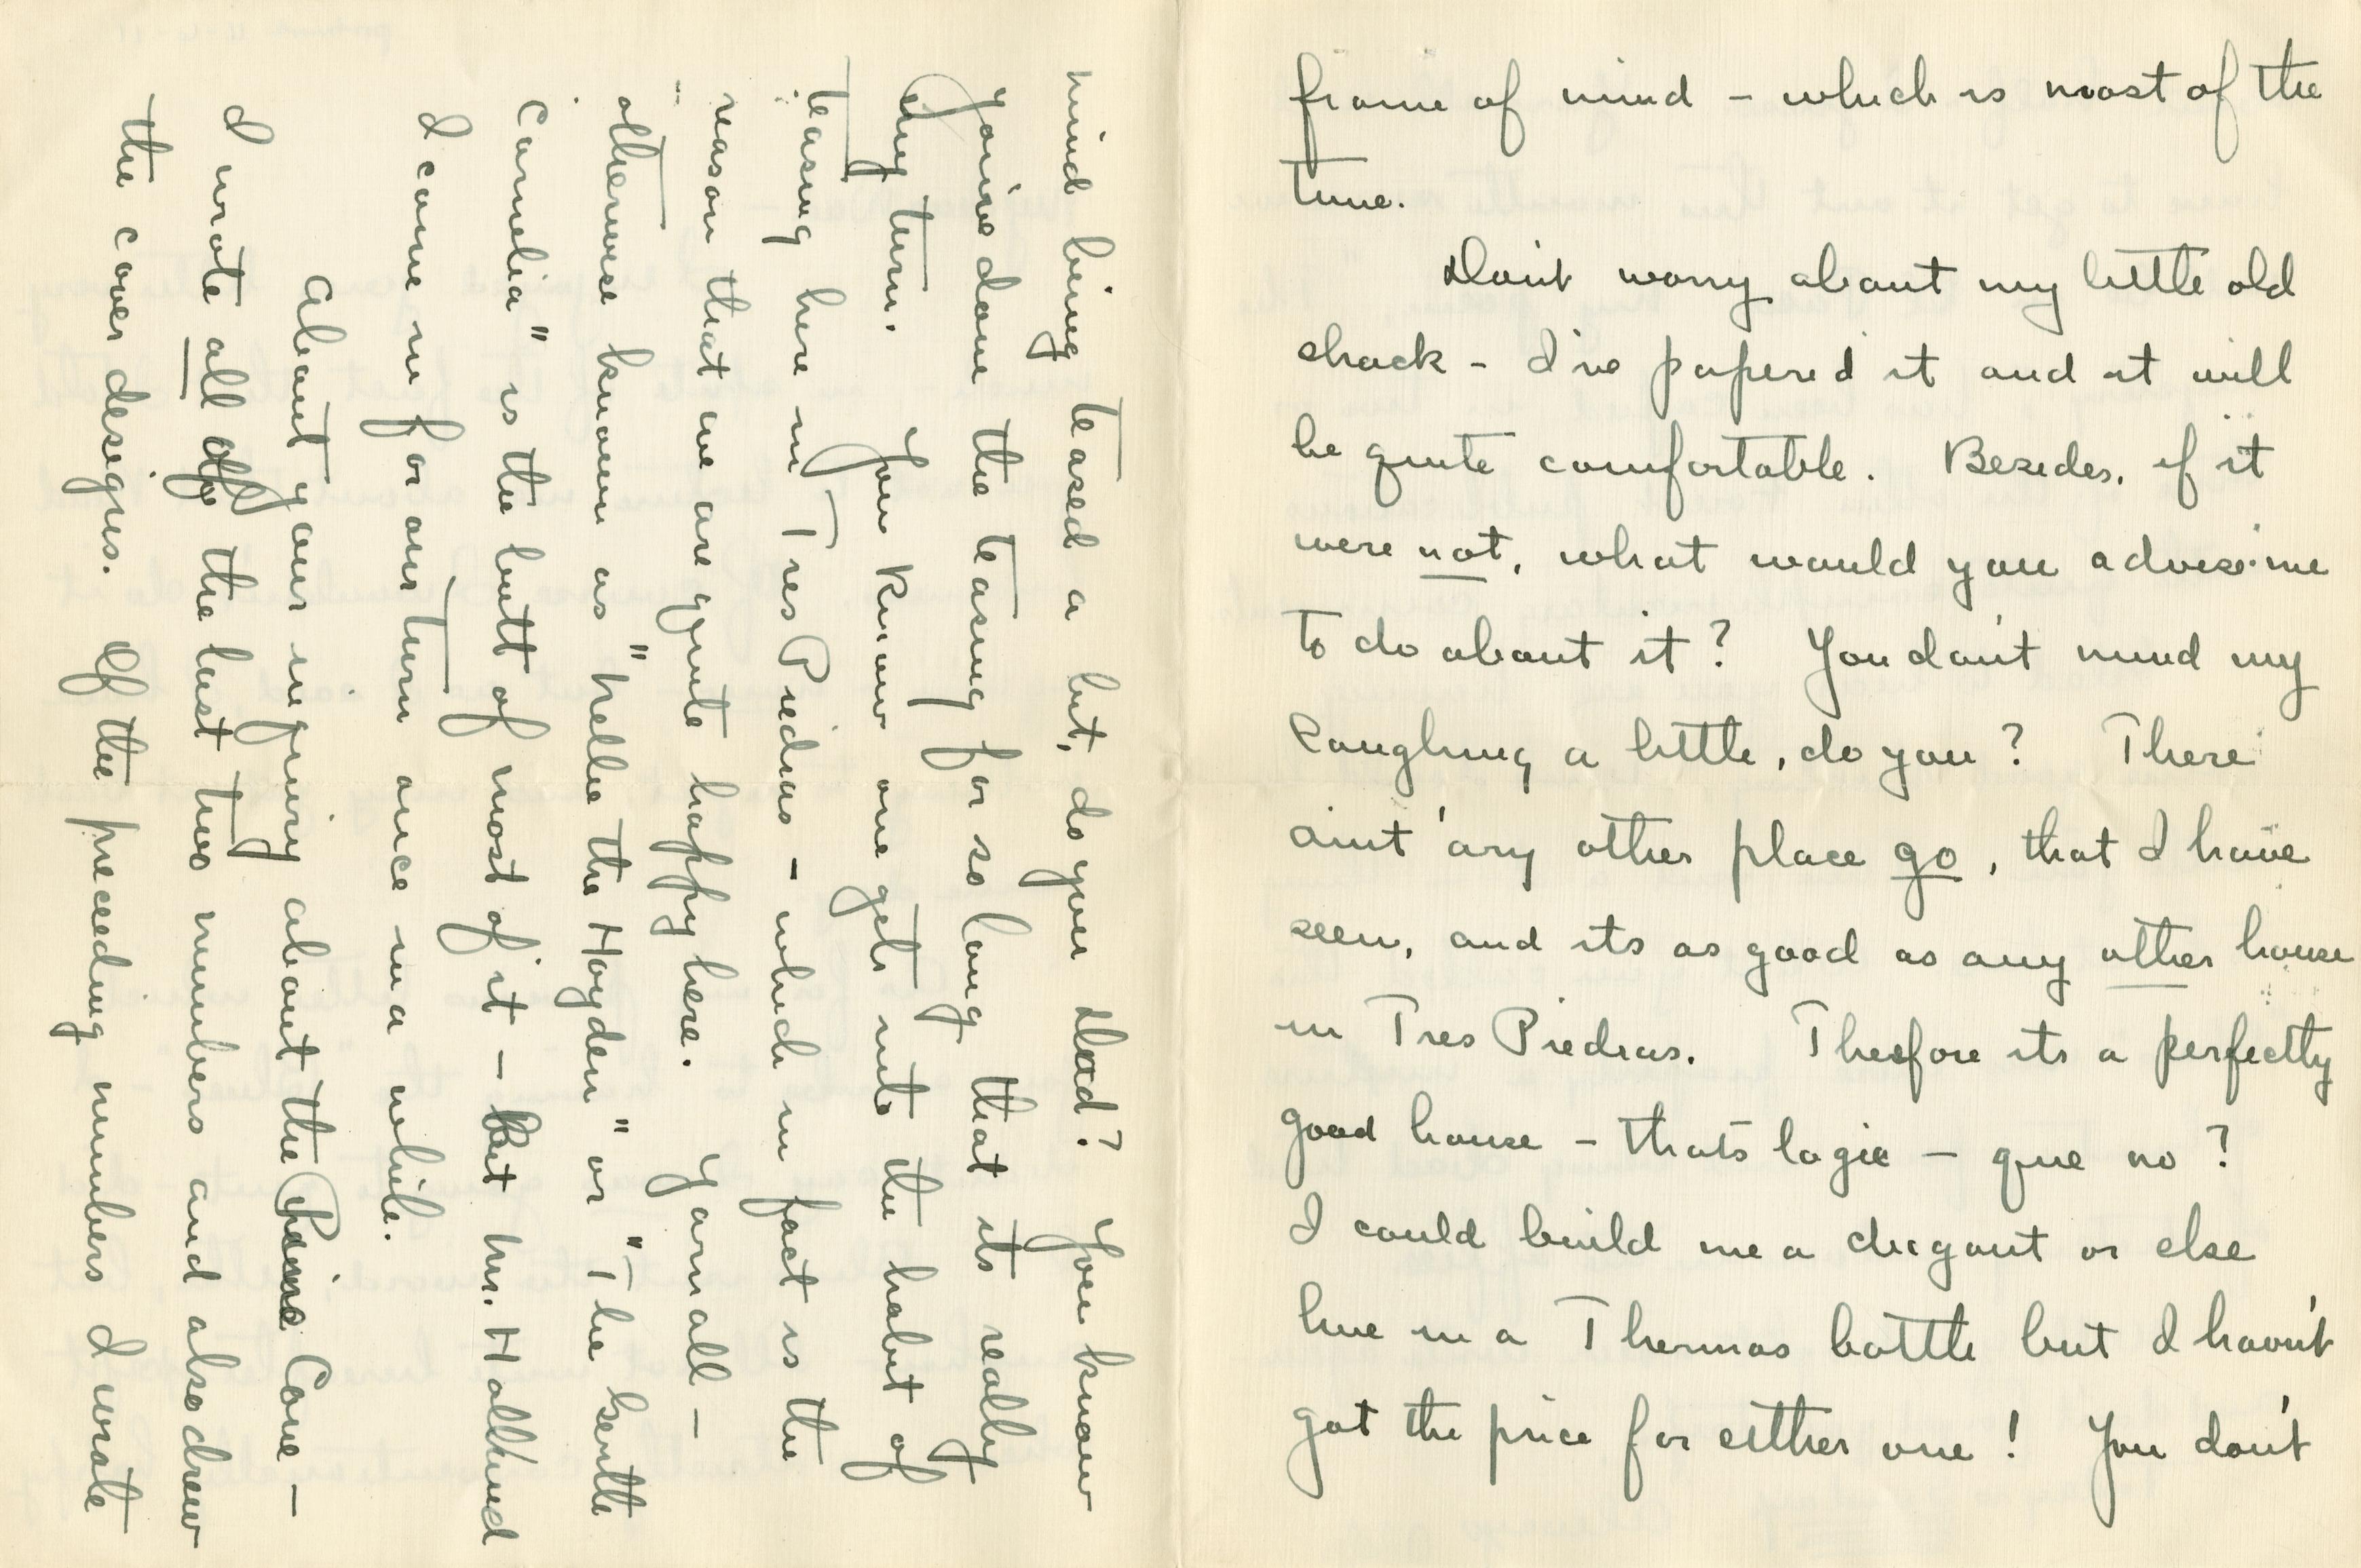 frame of mind - which is most of the
time.
Don't worry about my little old
shack - I've papered it and it will
be quite comfortable. Besides, if it
were not, what would you advise me
to do about it? You don't mind my
laughing a little, do you? There
ain't 'ary other place go, that I have
seen, and its as good as any other house
in Tres Piedras. Therefore its a perfectly
good house - that's logic - que no?
I could build me a dugout or else
live in a Thermos bottle but I havn't
got the price for either one! You don't
mind being teased a bit, do you Dad? You know
you've done the teasing for so long that its really
my turn. You know one gets into the habit of
teasing here in Tres Piedras - which in fact is the
reason that we are quite happy here. Yarnall -
otherwise known as "Nellie the Hoyden" or "The Gentle
Cornelia" is the butt of most of it - but Mr. Hall and
I come in for our turn once in a while.
About your inquiry about the Pine Cone -
I wrote all of the last two numbers and also drew
the cover designs. Of the preceding numbers I wrote